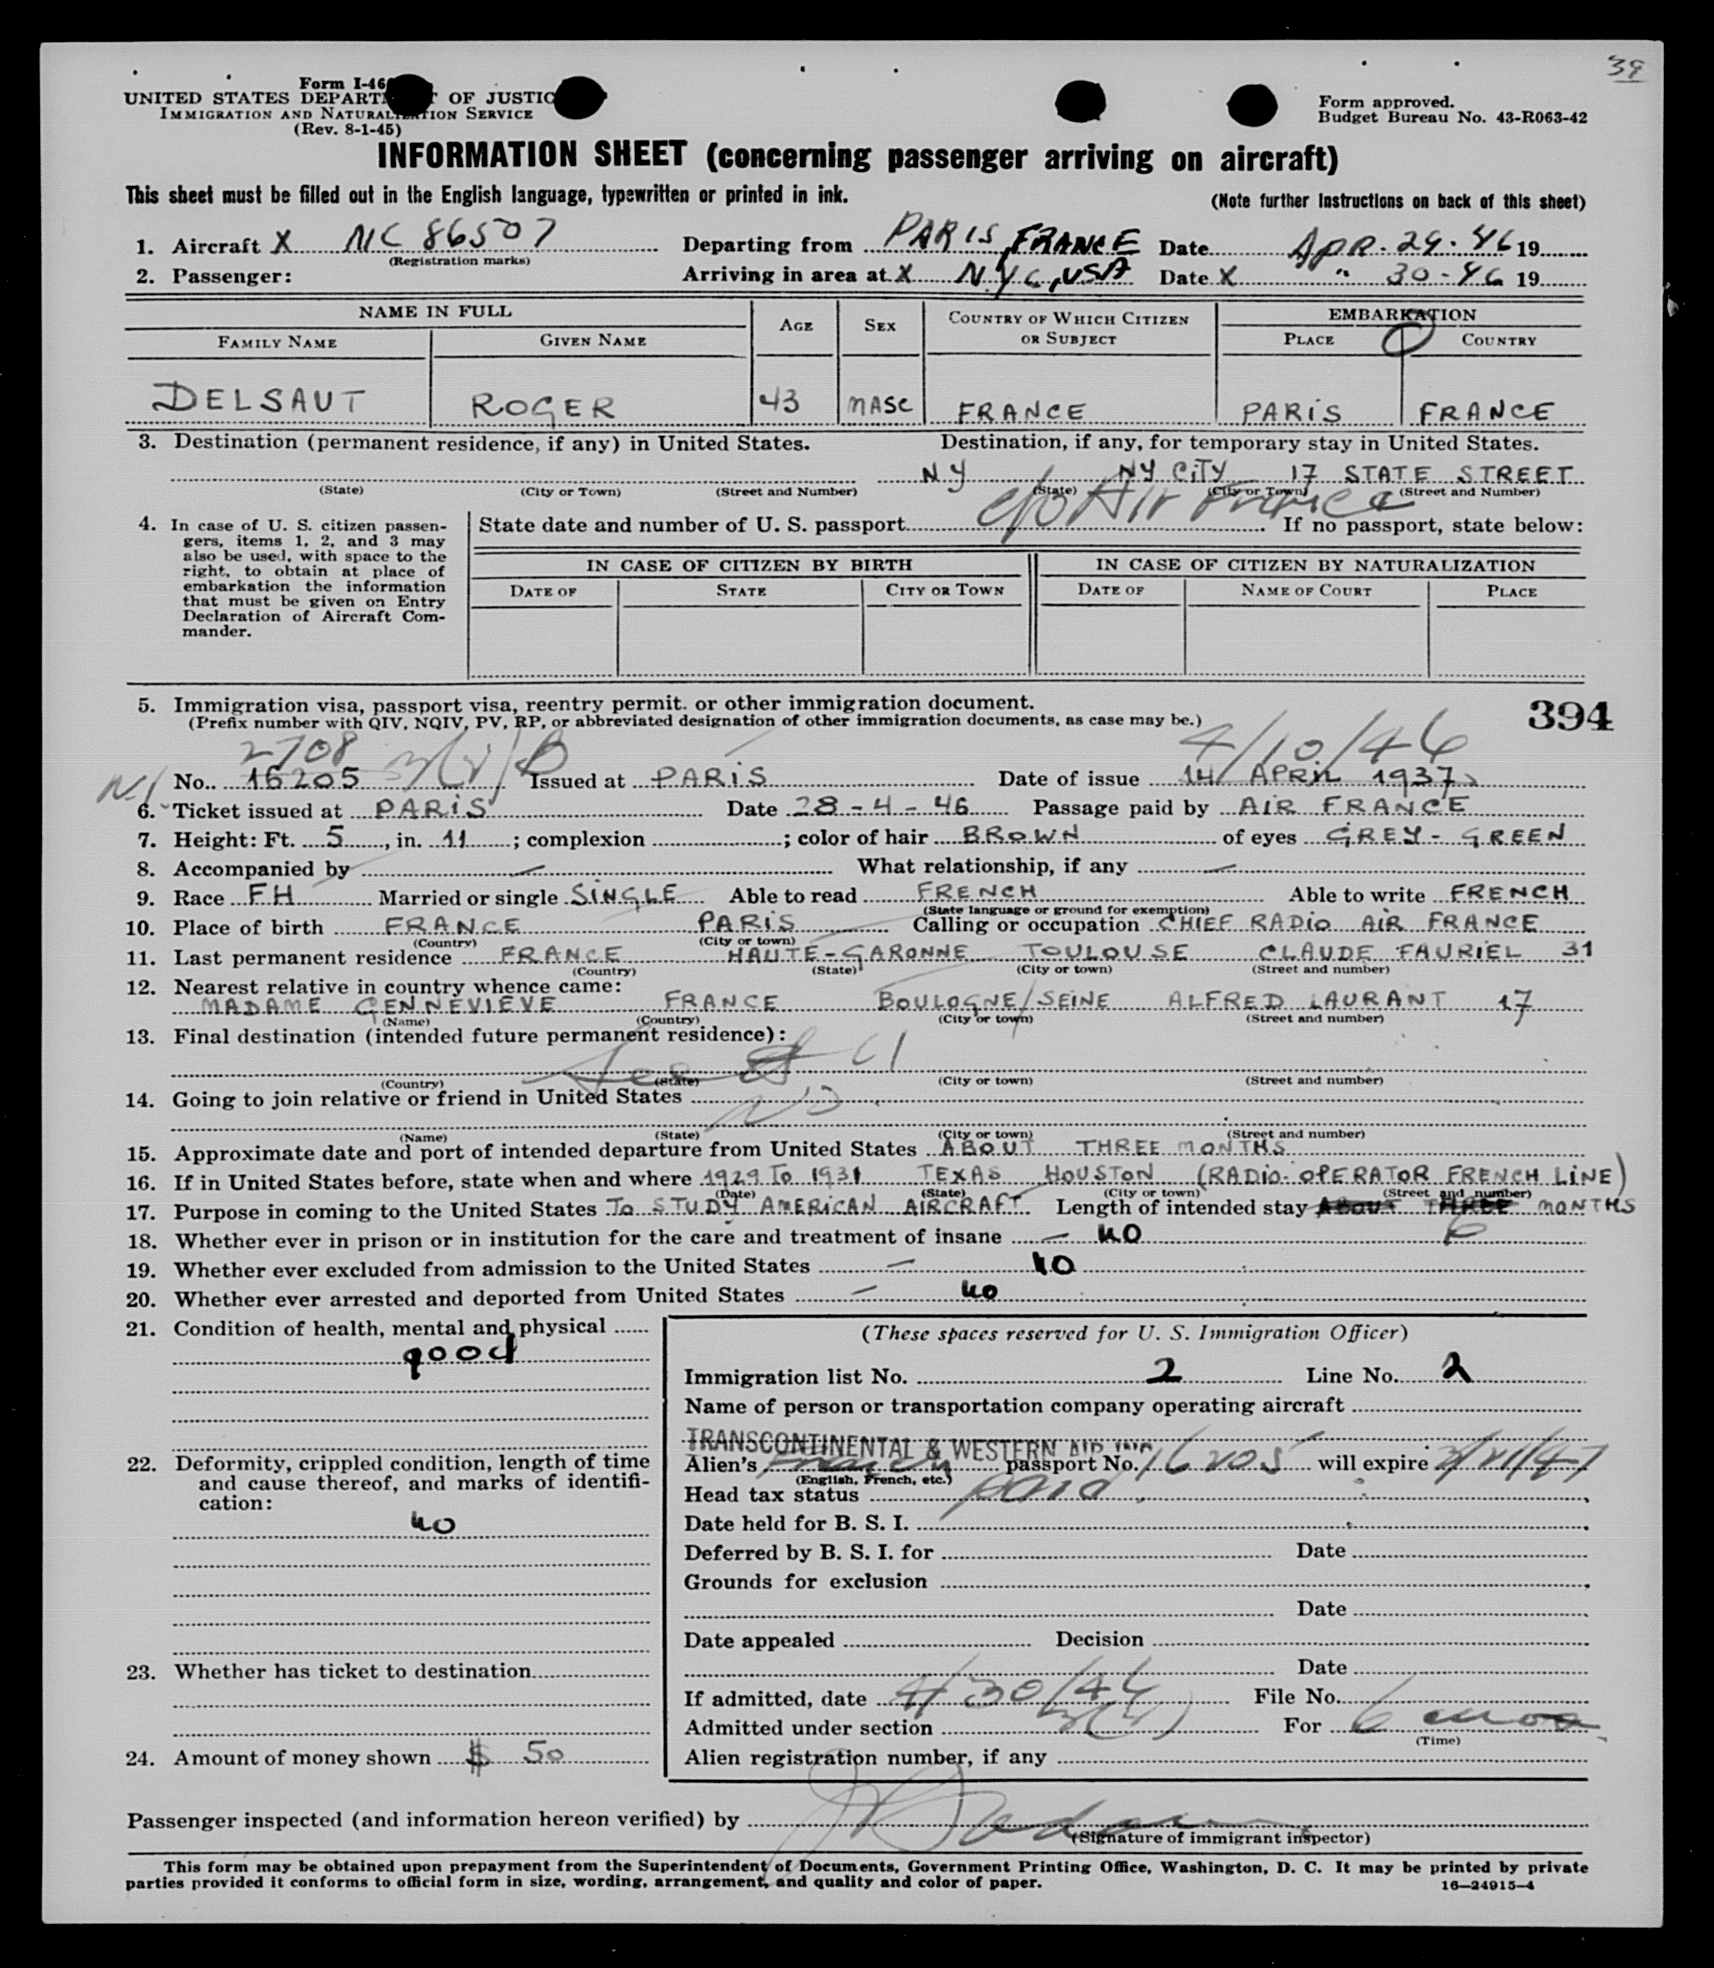 39
Form I-46
UNITED STATES DEPARTMENT OF JUSTICE
IMMIGRATION AND NATURALIZATION SERVICE
(Rev. 8-1-45)
Form approved.
Budget Bureau No. 43-R063-42
INFORMATION SHEET (concerning passenger arriving on aircraft)
This sheet must be filled out in the English language, typewritten or printed in ink. (Note further instructions on back of this sheet)
1. Aircraft X NC 86507 Departing from PARIS, FRANCE Date APR. 29. 46 19
(Registration marks)
2. Passenger: Arriving in area at X N.Y.C., USA Date X " 30-46 19
NAME IN FULL AGE SEX COUNTRY OF WHICH CITIZEN OR SUBJECT EMBARKATION
FAMILY NAME GIVEN NAME PLACE COUNTRY
DELSAUT ROGER 43 MASC FRANCE PARIS FRANCE
3. Destination (permanent residence, if any) in United States. Destination, if any, for temporary stay in United States.
NY NY CITY 17 STATE STREET
(State) (City or Town) (Street and Number) (State) (City or Town) (Street and Number)
c/o Air France
4. In case of U. S. citizen passengers, items 1, 2, and 3 may also be used, with space to the right, to obtain at place of embarkation the information that must be given on Entry Declaration of Aircraft Commander.
State date and number of U. S. passport If no passport, state below:
IN CASE OF CITIZEN BY BIRTH IN CASE OF CITIZEN BY NATURALIZATION
DATE OF STATE CITY OR TOWN DATE OF NAME OF COURT PLACE
5. Immigration visa, passport visa, reentry permit. or other immigration document.
(Prefix number with QIV, NQIV, PV, RP, or abbreviated designation of other immigration documents, as case may be.)
394
2708 4/10/46
No. 16205 Issued at PARIS Date of issue 14 APRIL 1937
6. Ticket issued at PARIS Date 28-4-46 Passage paid by AIR FRANCE
7. Height: Ft. 5, in. 11; complexion ; color of hair BROWN of eyes GREY-GREEN
8. Accompanied by — What relationship, if any —
9. Race FH Married or single SINGLE Able to read FRENCH Able to write FRENCH
(State language or ground for exemption)
10. Place of birth FRANCE PARIS Calling or occupation CHIEF RADIO AIR FRANCE
(Country) (City or town)
11. Last permanent residence FRANCE HAUTE-GARONNE TOULOUSE CLAUDE FAURIEL 31
(Country) (State) (City or town) (Street and number)
12. Nearest relative in country whence came:
MADAME GENNEVIEVE FRANCE BOULOGNE/SEINE ALFRED LAURANT 17
(Name) (Country) (City or town) (Street and number)
13. Final destination (intended future permanent residence):
See # 11
(Country) (State) (City or town) (Street and number)
14. Going to join relative or friend in United States
No
(Name) (State) (City or town) (Street and number)
15. Approximate date and port of intended departure from United States ABOUT THREE MONTHS
16. If in United States before, state when and where 1929 TO 1931 TEXAS HOUSTON (RADIO-OPERATOR FRENCH LINE)
(Date) (State) (City or town) (Street and number)
17. Purpose in coming to the United States TO STUDY AMERICAN AIRCRAFT Length of intended stay ABOUT THREE MONTHS
6
18. Whether ever in prison or in institution for the care and treatment of insane — no
19. Whether ever excluded from admission to the United States — no
20. Whether ever arrested and deported from United States — no
21. Condition of health, mental and physical
good
22. Deformity, crippled condition, length of time and cause thereof, and marks of identification:
no
23. Whether has ticket to destination
24. Amount of money shown $ 50
(These spaces reserved for U. S. Immigration Officer)
Immigration list No. 2 Line No. 2
Name of person or transportation company operating aircraft
TRANSCONTINENTAL & WESTERN AIR
Alien's French passport No. 16205 will expire 3/21/47
(English, French, etc.)
Head tax status paid
Date held for B. S. I.
Deferred by B. S. I. for Date
Grounds for exclusion
Date
Date appealed Decision
Date
If admitted, date 4/30/46 File No.
Admitted under section For 6 mos
(Time)
Alien registration number, if any
Passenger inspected (and information hereon verified) by
(Signature of immigrant inspector)
This form may be obtained upon prepayment from the Superintendent of Documents, Government Printing Office, Washington, D. C. It may be printed by private
parties provided it conforms to official form in size, wording, arrangement, and quality and color of paper. 16—24915-4